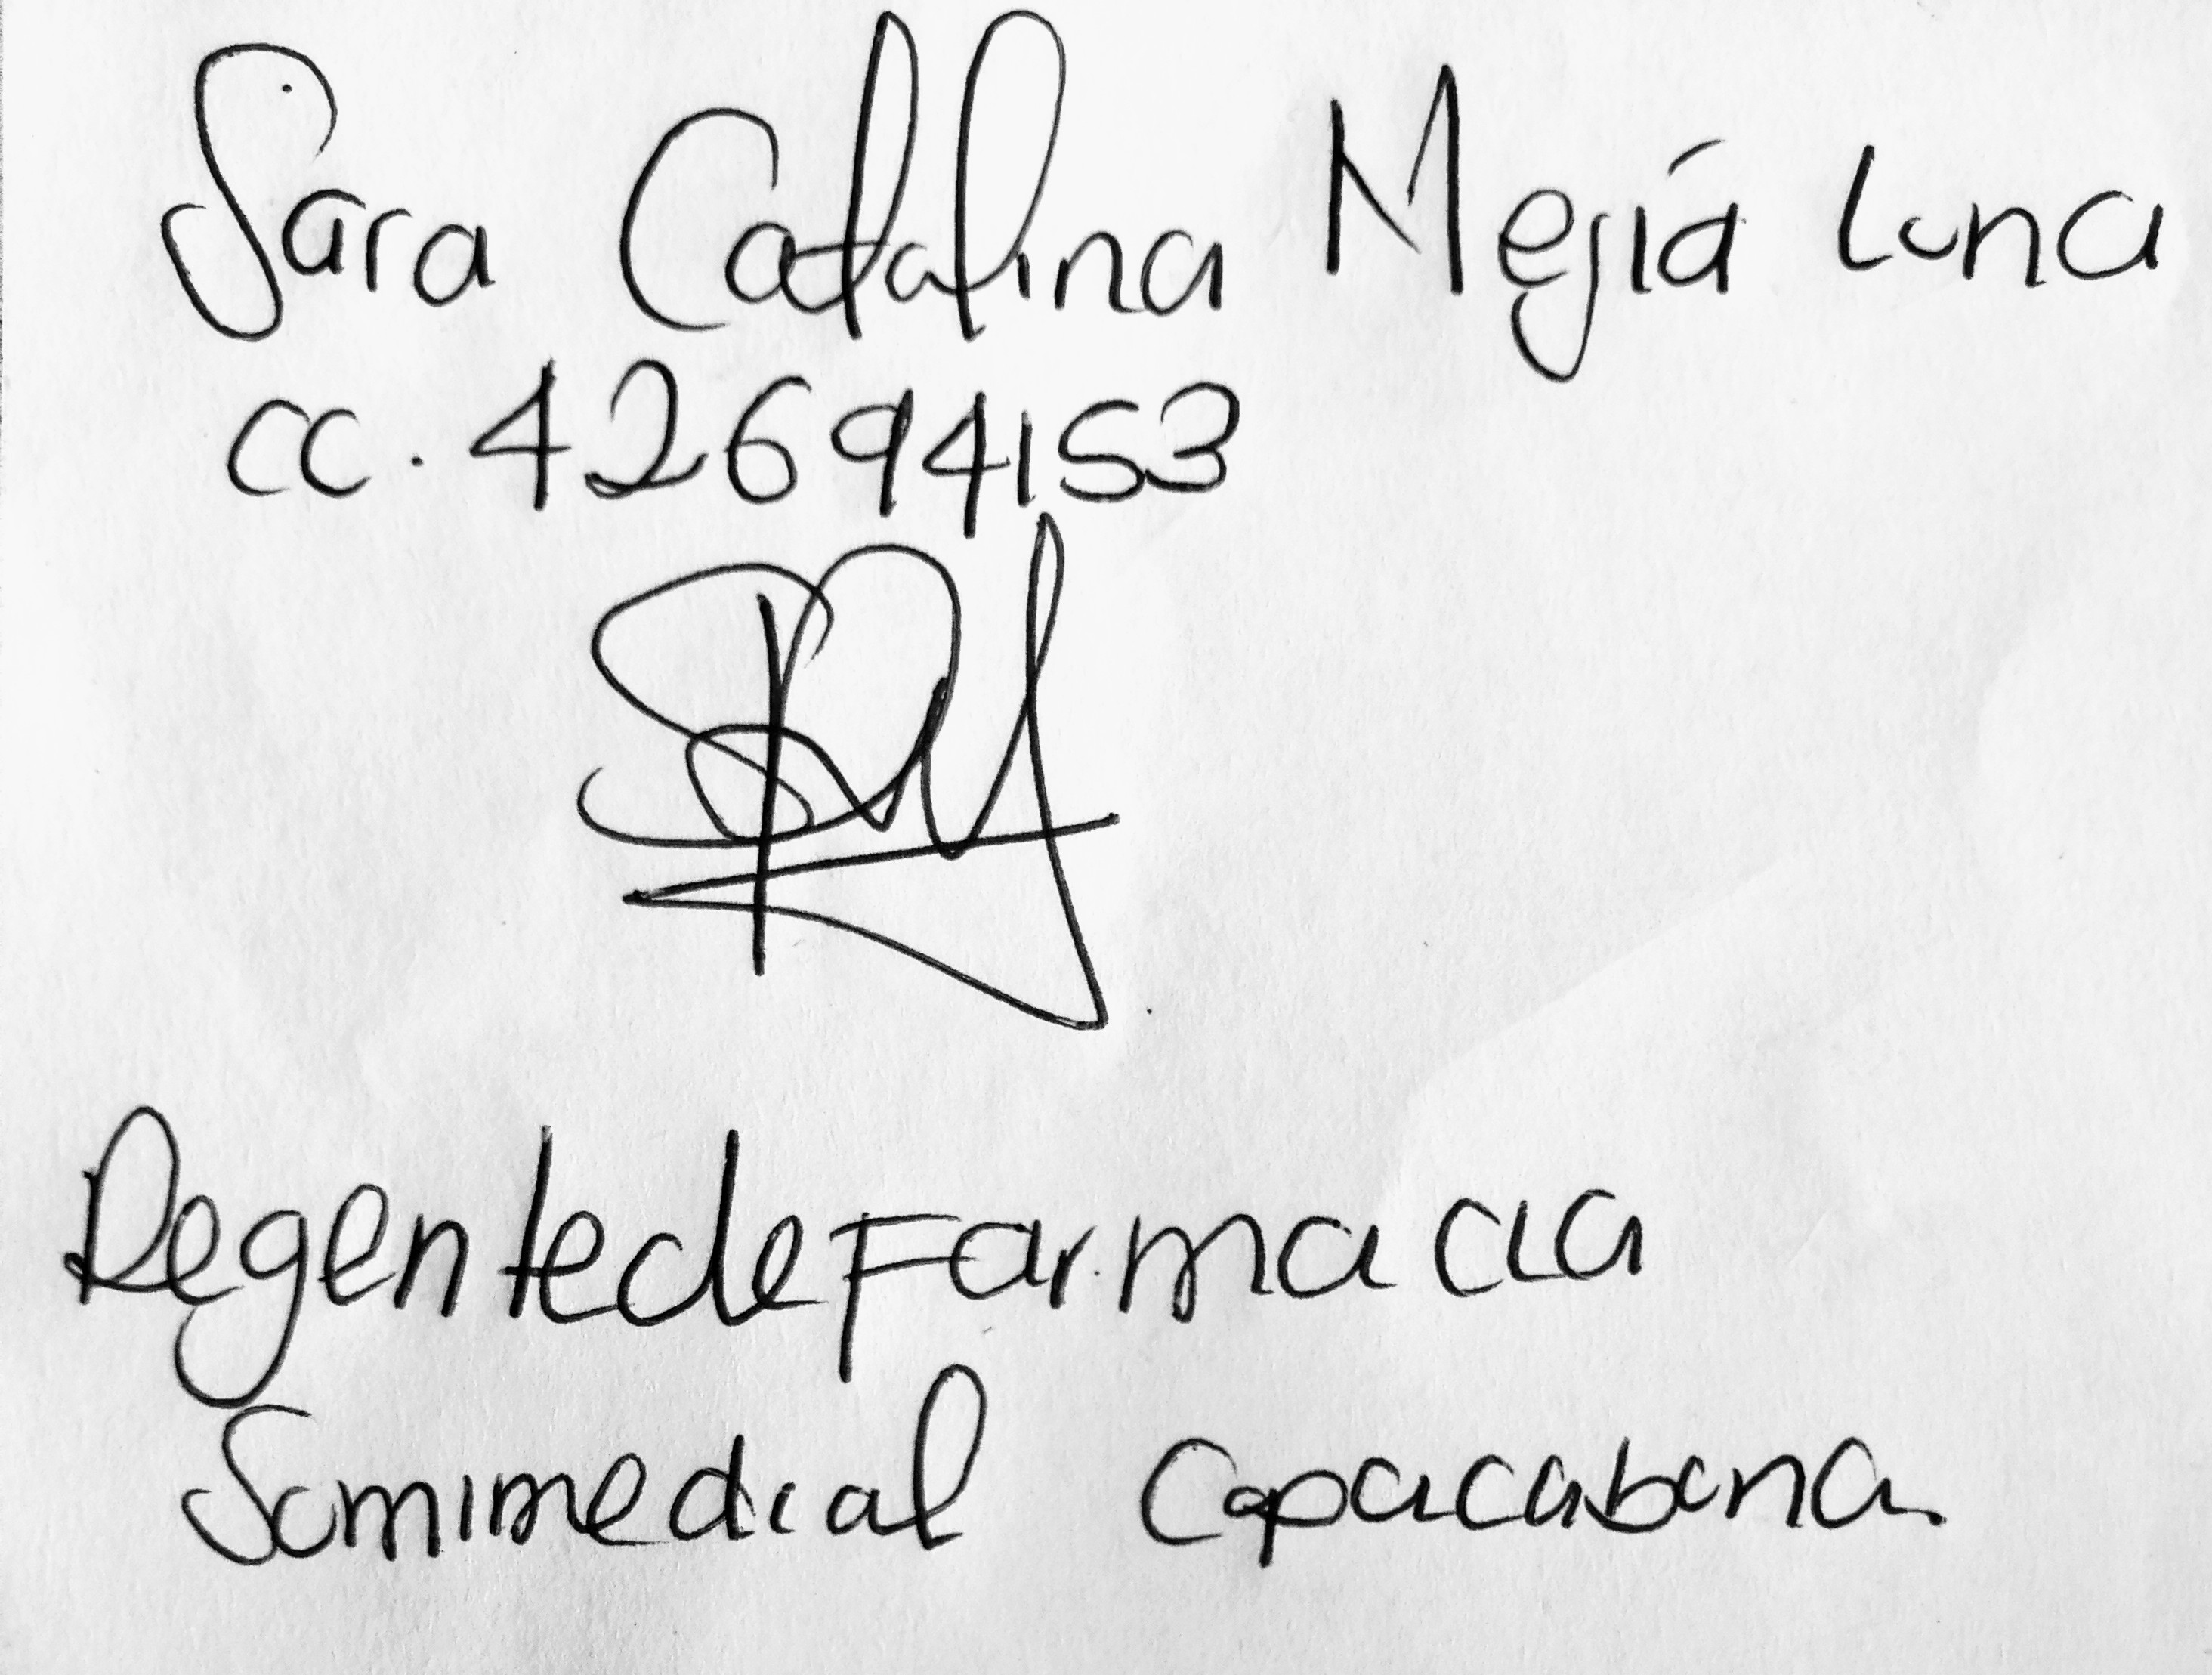 Sara Catalina Mejía Luna
CC. 42694153
Regente de Farmacia
Somimedical Copacabana